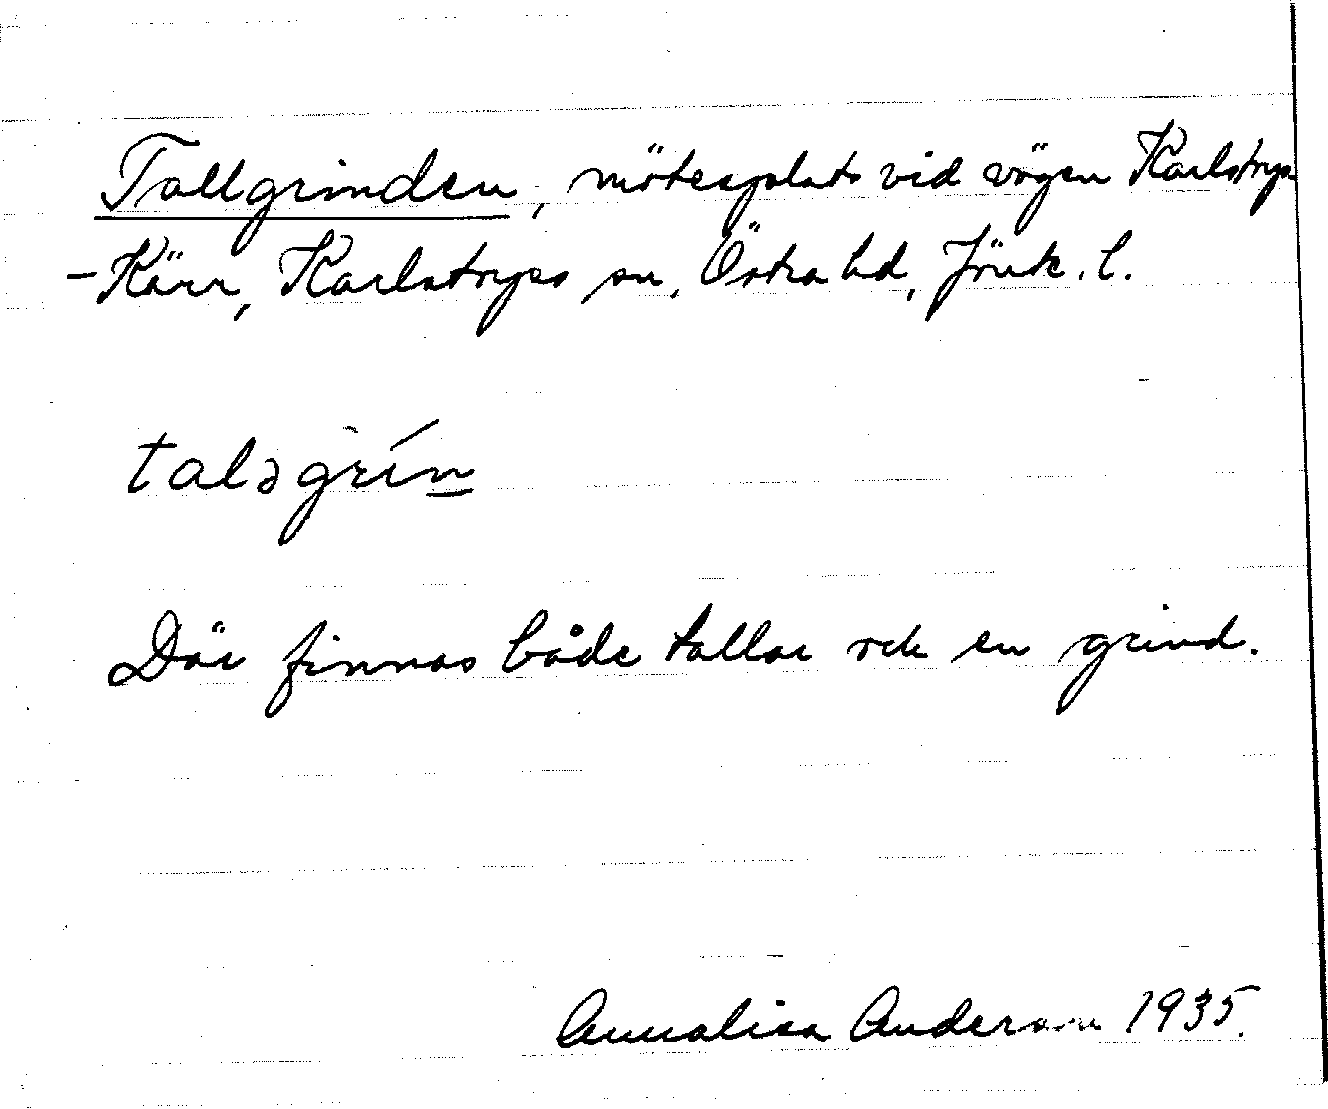 Tallgrinden, mötesplats vid vägen Karlstryp
-Kärr, Karlstryps sn, Östra hd, Jönk. l.
taləgrín
Där finnas både tallar och en grind.
Annalisa Anderson 1935.